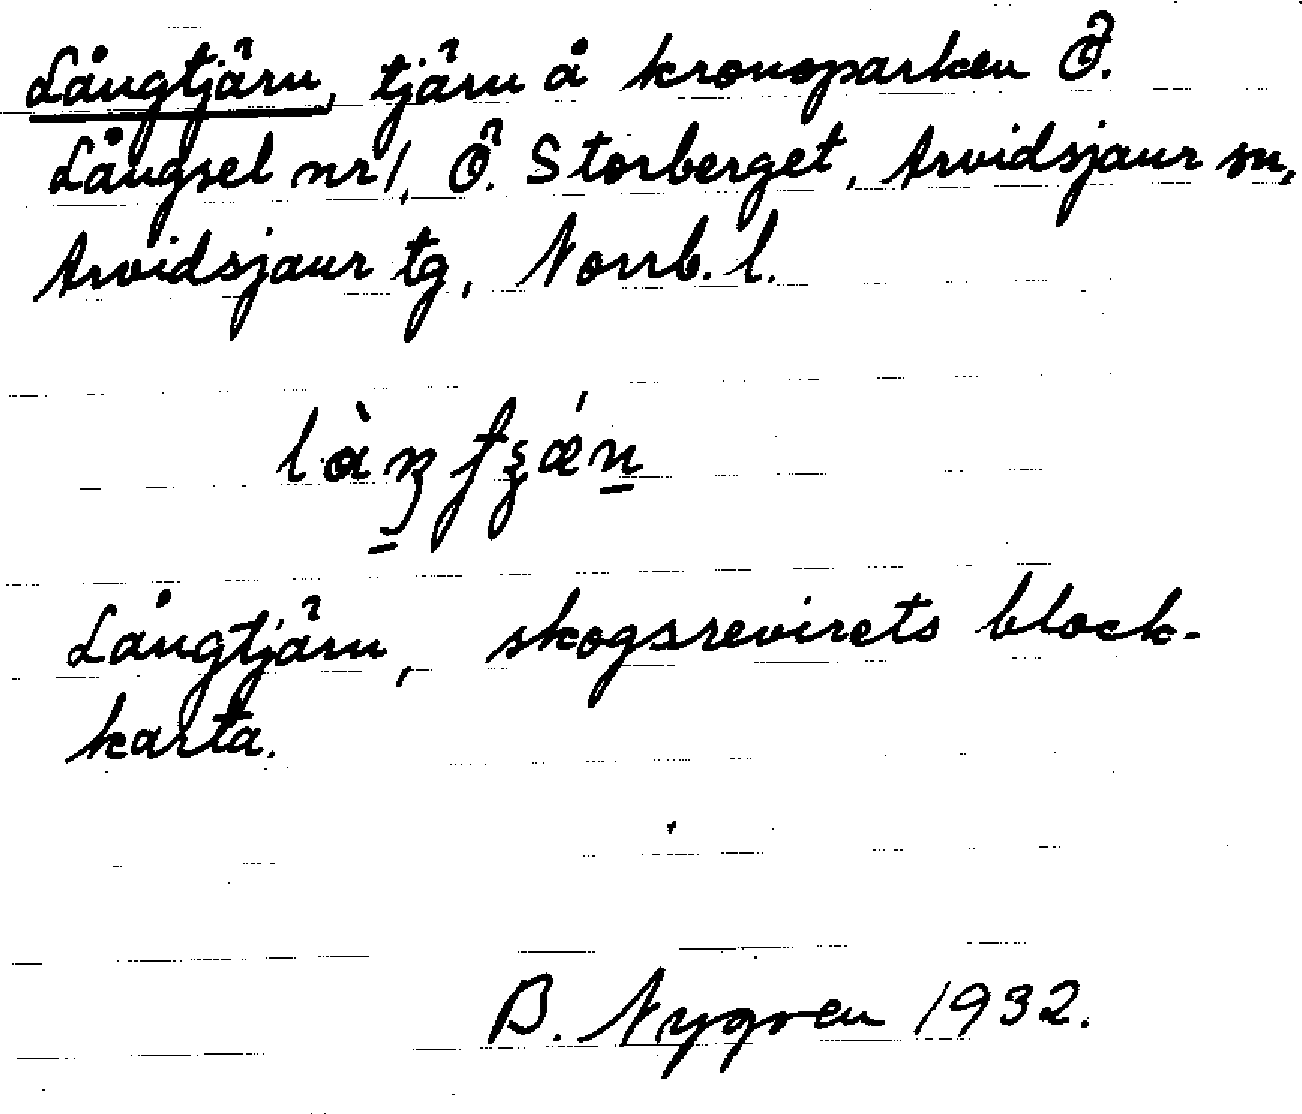 Långtjärn, tjärn å kronoparken Ö.
Långsel nr 1, Ö. Storberget, Arvidsjaur sn,
Arvidsjaur tg, Norrb. l.
Långtjärn, skogsrevirets block-
karta.
B. Nygren 1932.